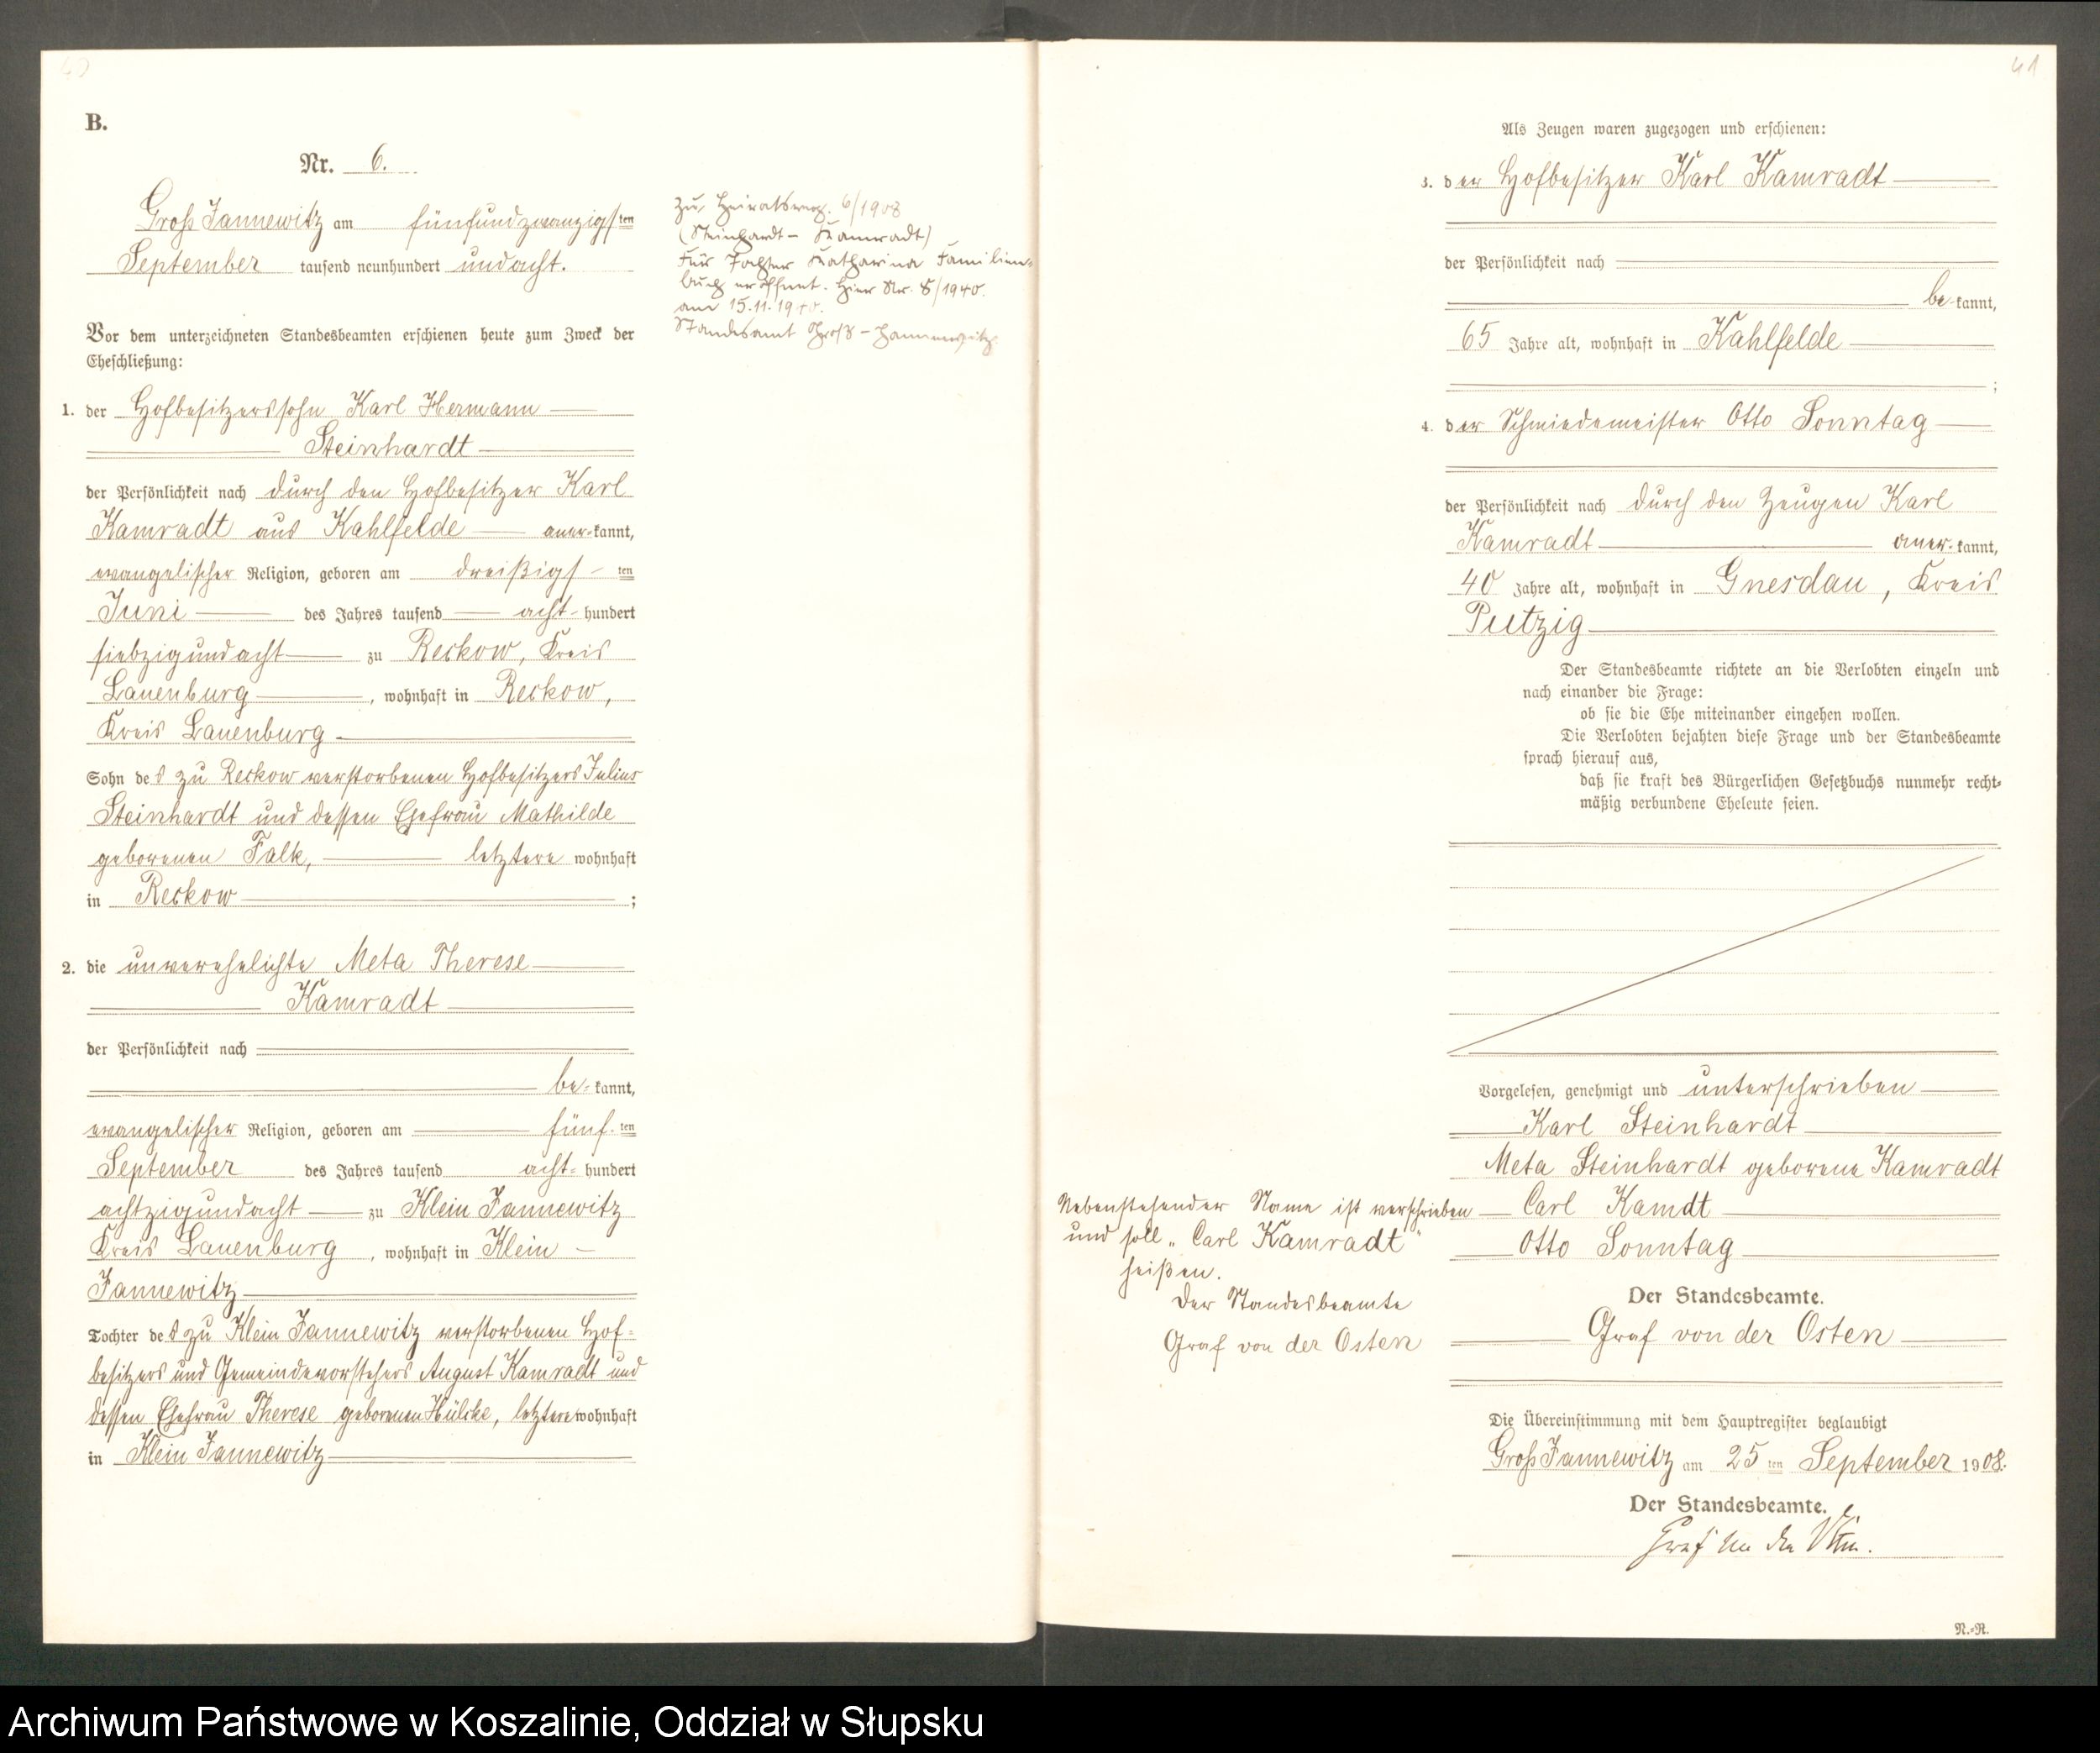 40
B.
Nr. 6.
Groß Jannewitz am fünfundzwanzigsten
September tausend neunhundert undacht.
Vor dem unterzeichneten Standesbeamten erschienen heute zum Zweck der
Eheschließung:
1. der Hofbesitzerssohn Karl Hermann
Steinhardt
der Persönlichkeit nach durch den Hofbesitzer Karl
Kamradt aus Kahlfelde aner-kannt,
evangelischer Religion, geboren am dreißigsten
Juni des Jahres tausend acht-hundert
siebzigundacht zu Reckow, Kreis
Lauenburg, wohnhaft in Reckow,
Kreis Lauenburg
Sohn des zu Reckow verstorbenen Hofbesitzers Julius
Steinhardt und dessen Ehefrau Mathilde
geborenen Falk, letztere wohnhaft
in Reckow ;
2. die unverehelichte Meta Therese
Kamradt
der Persönlichkeit nach
be-kannt,
evangelischer Religion, geboren am fünf-ten
September des Jahres tausend acht-hundert
achtzigundacht zu Klein Jannewitz
Kreis Lauenburg, wohnhaft in Klein-
Jannewitz
Tochter des zu Klein Jannewitz verstorbenen Hof-
besitzers und Gemeindevorstehers August Kamradt und
dessen Ehefrau Therese geborenen Hülcke, letztere wohnhaft
in Klein Jannewitz
Zu Heiratsreg. 6/1908
(Steinhardt - Kamradt)
Für Tochter Katharina Familien-
buch eröffnet. Hier Nr. 8/1940.
am 15.11.1940.
Standesamt Groß-Jannewitz
41
Als Zeugen waren zugezogen und erschienen:
3. der Hofbesitzer Karl Kamradt
der Persönlichkeit nach
be-kannt,
65 Jahre alt, wohnhaft in Kahlfelde
;
4. der Schmiedemeister Otto Sonntag
der Persönlichkeit nach durch den Zeugen Karl
Kamradt aner-kannt,
40 Jahre alt, wohnhaft in Gnesdau, Kreis
Putzig
Der Standesbeamte richtete an die Verlobten einzeln und
nach einander die Frage:
ob sie die Ehe miteinander eingehen wollen.
Die Verlobten bejahten diese Frage und der Standesbeamte
sprach hierauf aus,
daß sie kraft des Bürgerlichen Gesetzbuchs nunmehr recht-
mäßig verbundene Eheleute seien.
Vorgelesen, genehmigt und unterschrieben
Karl Steinhardt
Meta Steinhardt geborene Kamradt
Carl Kamdt
Otto Sonntag
Nebenstehender Name ist verschrieben
und soll „Carl Kamradt"
heißen.
Der Standesbeamte
Graf von der Osten
Der Standesbeamte.
Graf von der Osten
Die Übereinstimmung mit dem Hauptregister beglaubigt
Groß Jannewitz am 25ten September 1908.
Der Standesbeamte.
Graf von der Osten.
N.-R.
Archiwum Państwowe w Koszalinie, Oddział w Słupsku